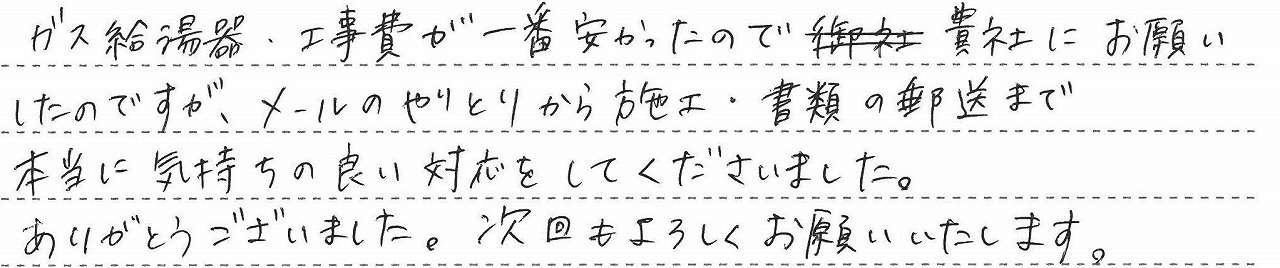 ガス給湯器・工事費が一番安かったので御社 貴社にお願い
したのですが、メールのやりとりから施工・書類の郵送まで
本当に気持ちの良い対応をしてくださいました。
ありがとうございました。次回もよろしくお願いいたします。